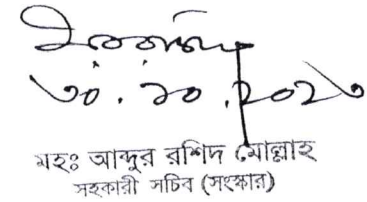 ৩০.১০.২০২৩
মহঃ আব্দুর রশিদ মোল্লাহ
সহকারী সচিব (সংস্কার)